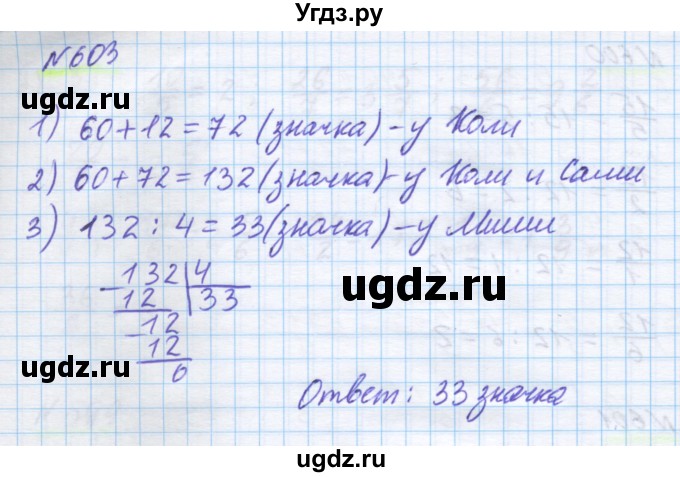 Угдз.ру
№603
ugdz.ru ugdz.ru
1) 60+12=72 (значка) - у Коли
2) 60+72=132 (значка) - у Коли и Саши
3) 132 : 4 = 33 (значка) - у Миши
ugdz.ru ugdz.ru
- 132 | 4
12 | 33
- 12
12
0
Ответ: 33 значка
ugdz.ru ugdz.ru
ugdz.ru